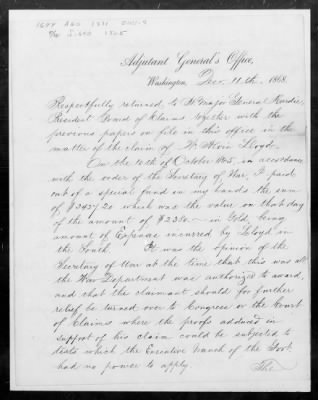 Adjutant General's Office,
Washington, Dec. 11th, 1868.
Respectfully returned to Bt Major General Hardie,
President Board of Claims together with the
previous papers on file in this office in the
matter of the claim of Wm Alvin Lloyd.
On the 10th of October 1865, in accordance
with the order of the Secretary of War, I paid
out of a special fund in my hands the sum
of $3427.20 which was the value on that day
of the amount of $2380 — in Gold, being
amount of Expense incurred by Lloyd in
the South. It was the opinion of the
Secretary of War at the time that this was all
the War Department was authorized to award,
and that the claimant should for further
relief be turned over to Congress or the Court
of Claims where the proofs adduced in
support of his claim could be subjected to
tests which the Executive branch of the Govt.
had no power to apply.
The